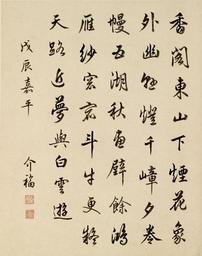 香閣東山下煙花象
外幽懸燈千嶂夕卷
幔五湖秋畫壁餘鴻
雁紗窓宿斗牛更疑
天路近夢與白雲遊
戊辰嘉平
介福